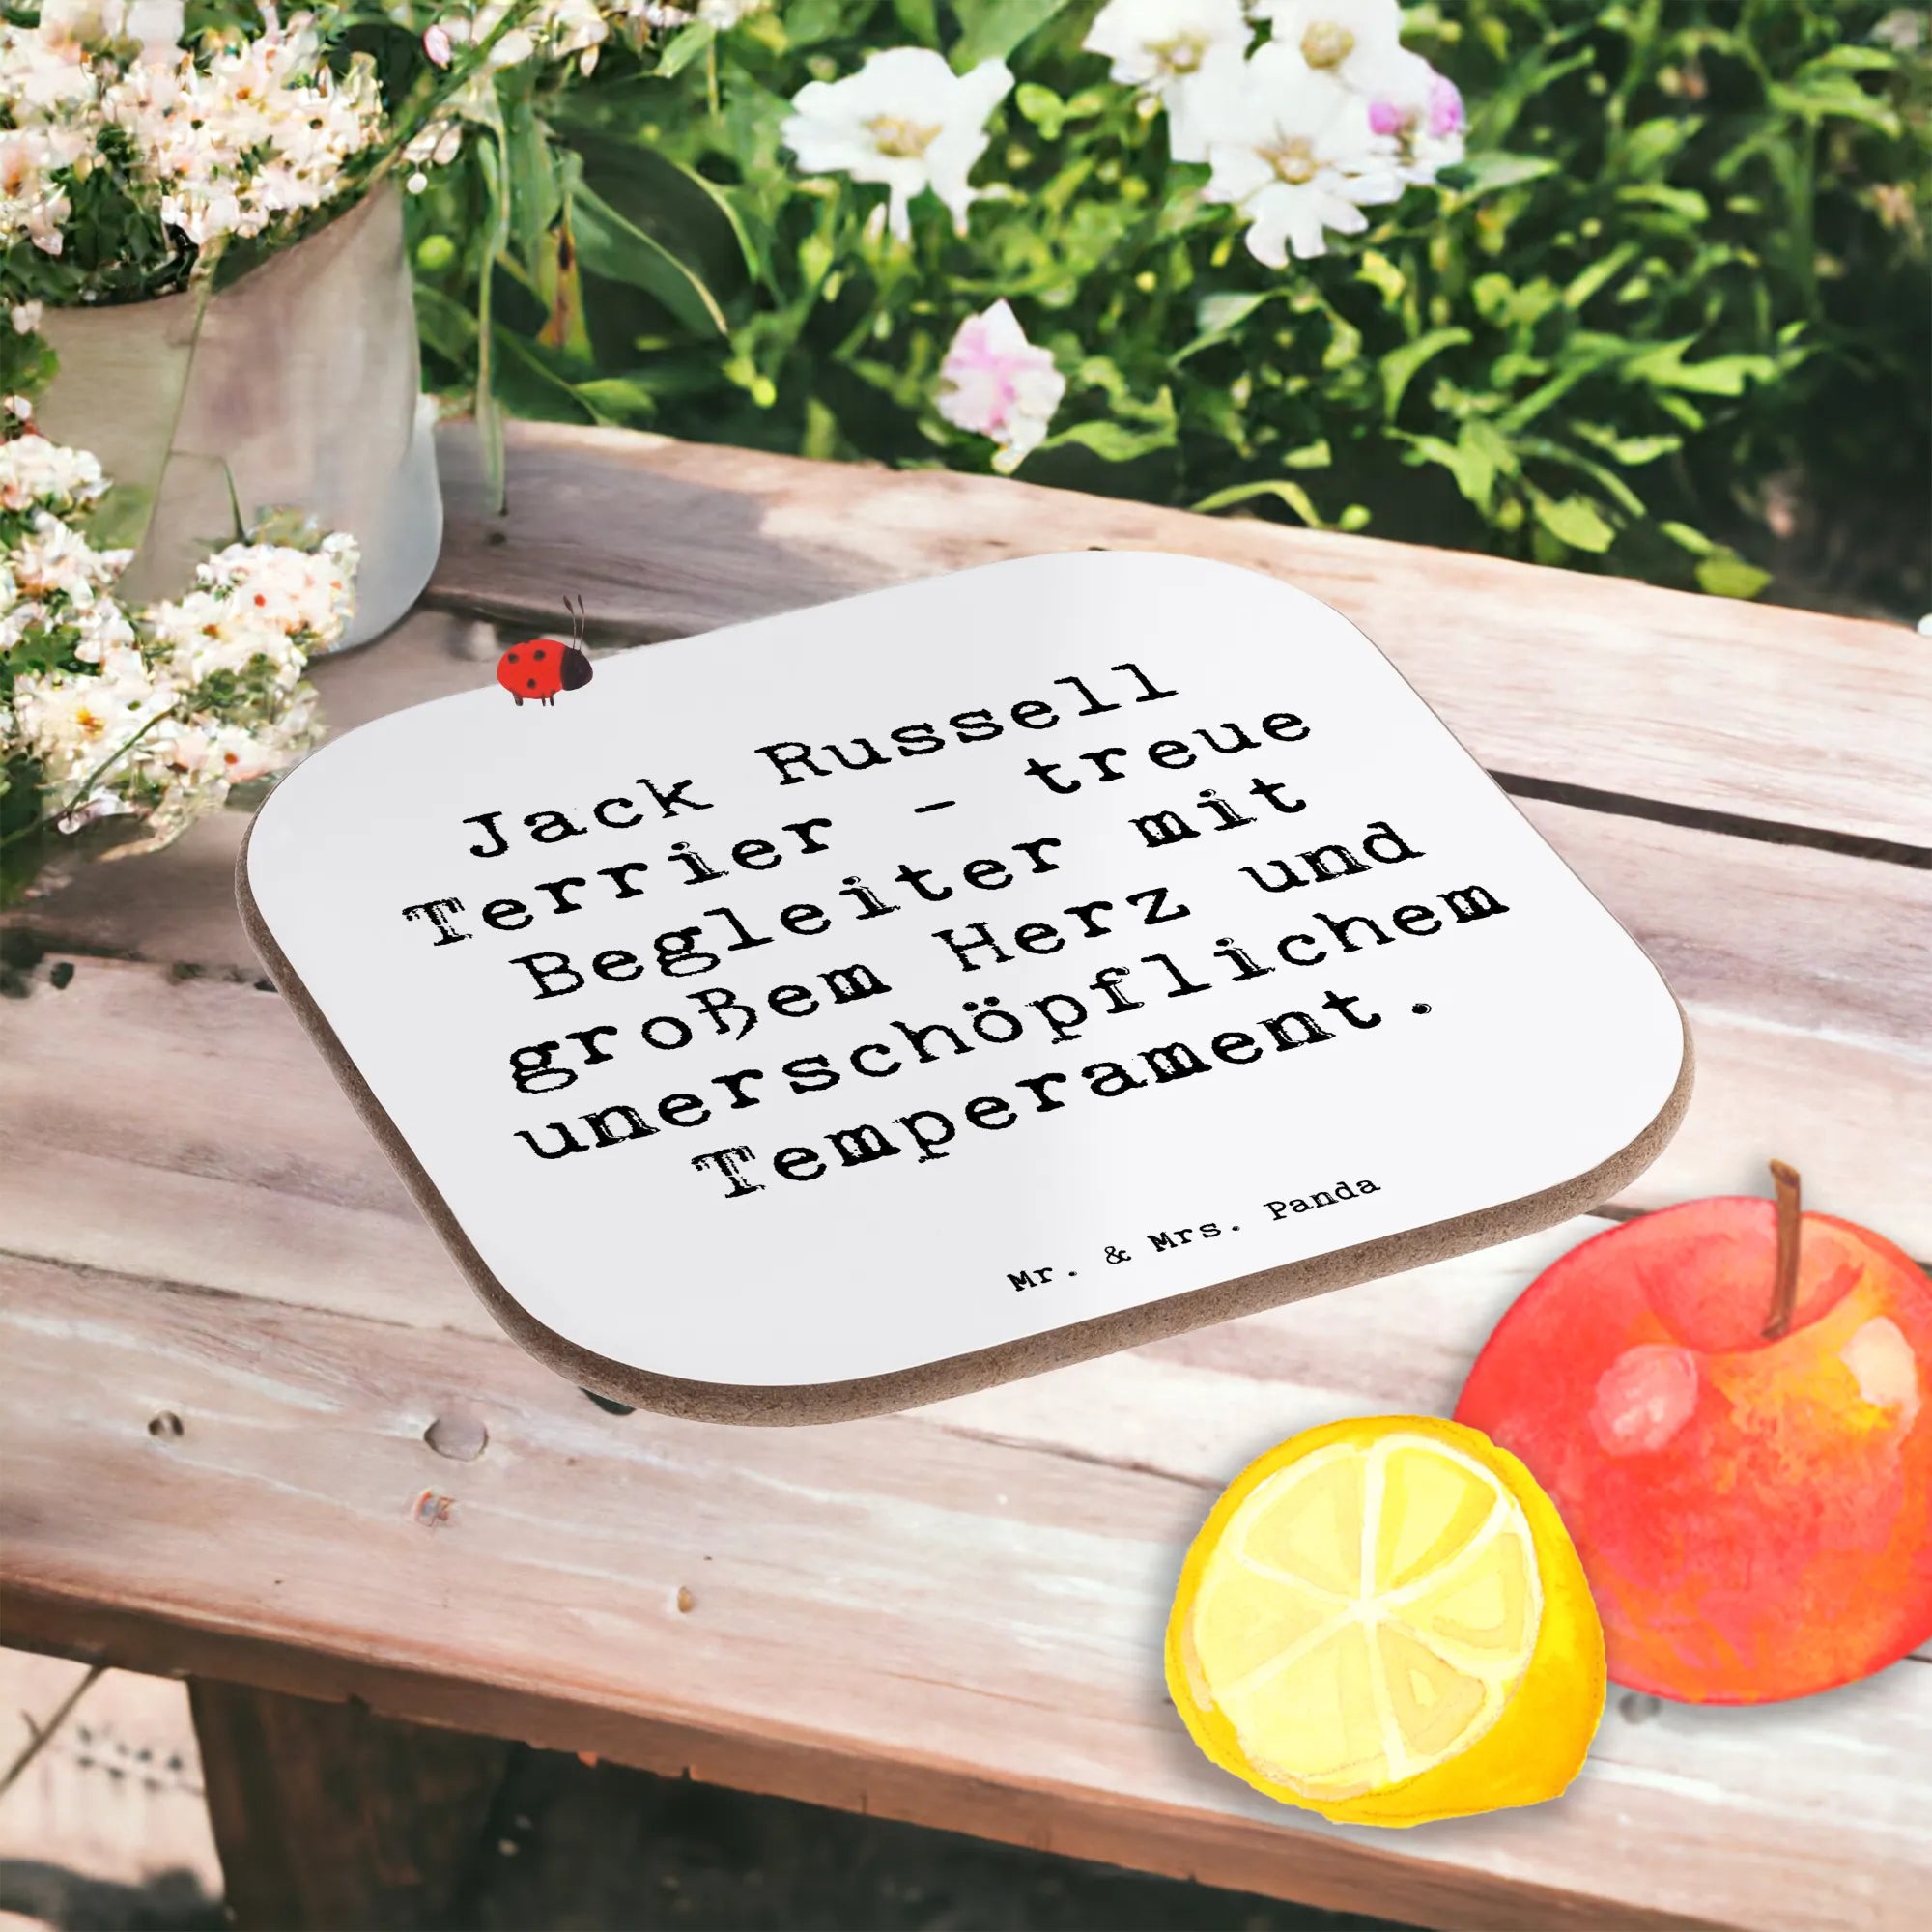 Jack Russell
Terrier - treue
Begleiter mit
großem Herz und
unerschöpflichem
Temperament.
Mr. & Mrs. Panda